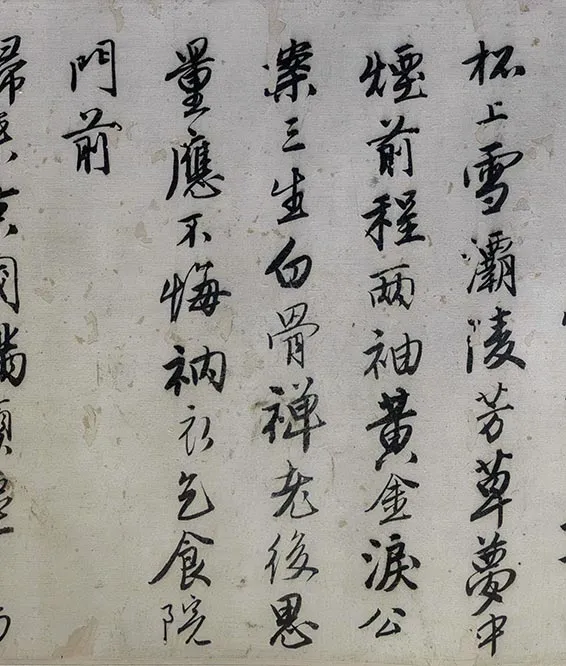 杯上雪灞陵芳草夢中
煙前程兩袖黃金淚公
案三生白骨禪老後思
量應不悔衲衣乞食院
門前